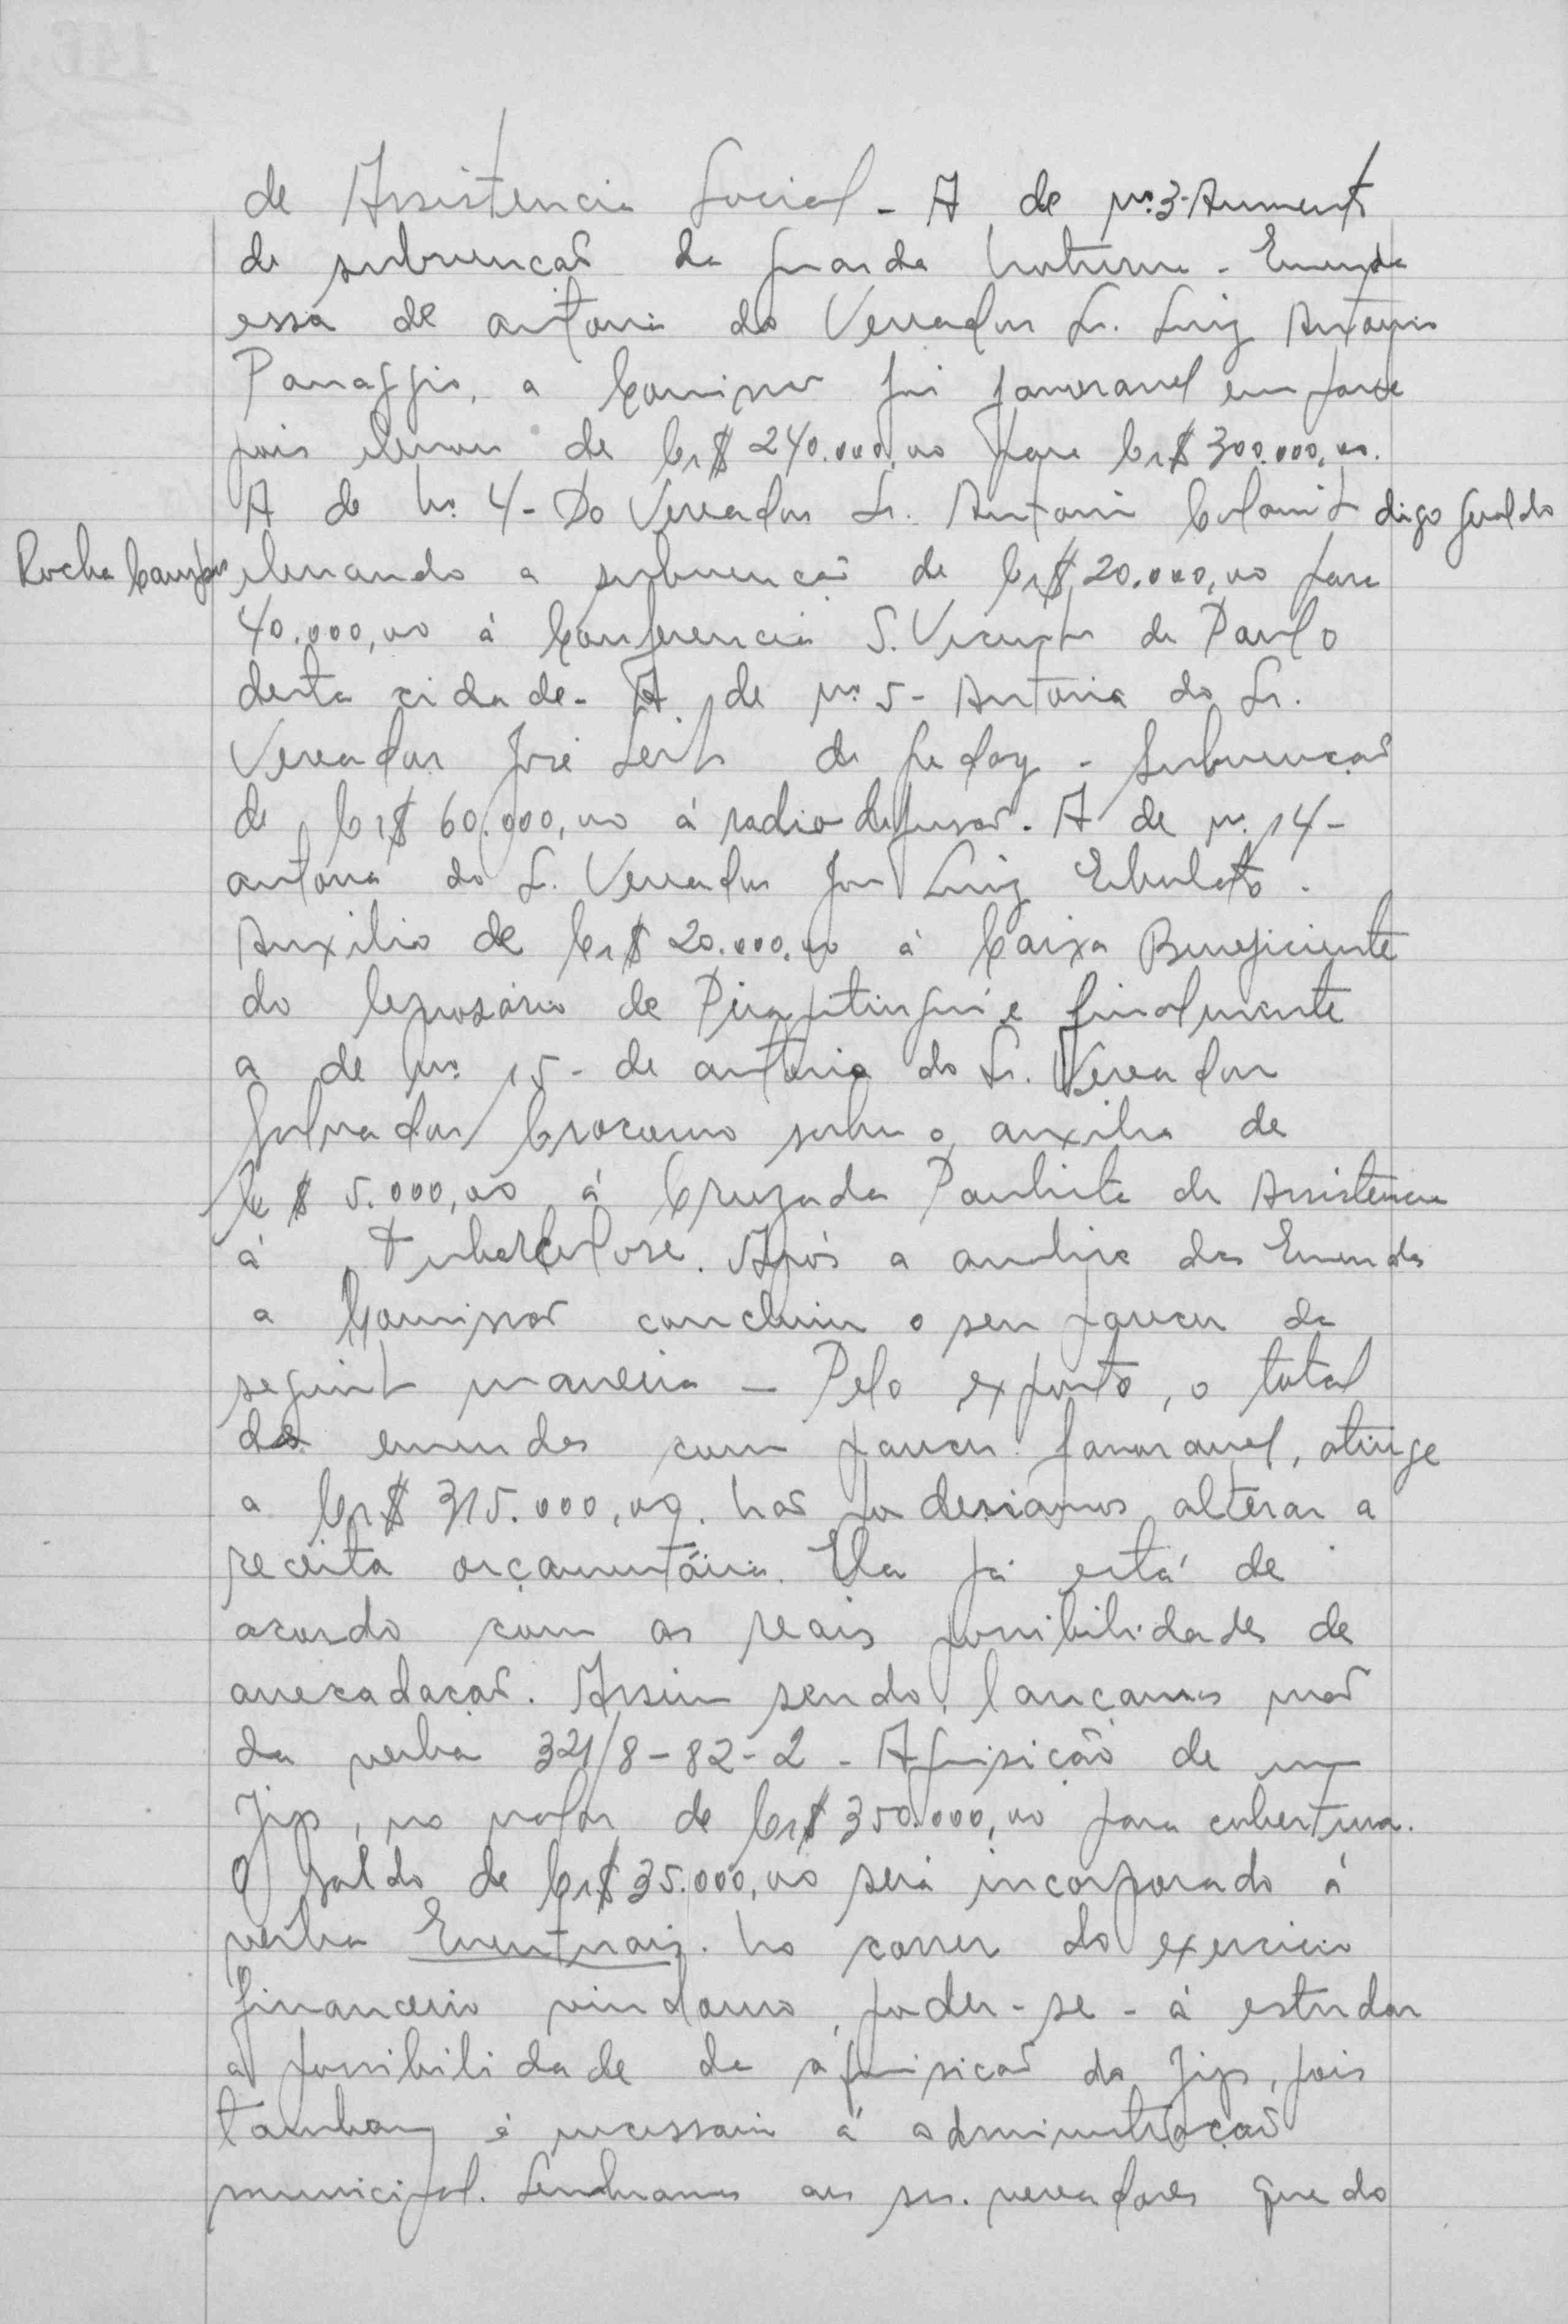 de Assistencia Social - A de nº 3 - Aumento
de subvenção da guarda noturna - Emenda
essa de autoria do Vereador Sr. Luiz Antonio
Panaggio, a Comissão foi favoravel em parte
pois elevou de Cr$ 240.000,00 para Cr$ 300.000,00.
A de nº 4 - Do Vereador Sr. Antonio digo Geraldo
Rocha Campos elevando a subvenção de Cr$ 20.000,00 para
40.000,00 á Conferencia S. Vicente de Paulo
desta cidade - A de nº 5 - Autoria do Sr.
Vereador José Leite de Godoy - Subvenção
de Cr$ 60.000,00 á radio difusão. A de nº 14 -
autoria do Sr. Vereador Luiz
Auxilio de Cr$ 20.000,00 á Caixa Beneficiente
do leprosário de Pirapitingui e finalmente
a de nº 15 - de autoria do Sr. Vereador
Salvador sobre o auxilio de
Cr$ 5.000,00 á Cruzada Paulista de Assistencia
á Tuberculose. Após a analise das Emendas
a Comissão concluiu o seu parecer da
seguinte maneira - Pelo exposto, o total
das emendas com parecer favoravel, atinge
a Cr$ 315.000,00. Não poderiamos alterar a
receita orçamentária. Ela já está de
acordo com as reais possibilidades de
arrecadação. Assim sendo, lançamos mão
da verba 321/8-82-2 - Aquisição de um
Jip, no valor de Cr$ 350.000,00 para cobertura.
O Saldo de Cr$ 35.000,00 será incorporado á
verba Eventuais. No correr do exercicio
financeiro vindouro, poder-se-á estudar
a possibilidade da aquisição do Jip, pois
tambem é necessario á administração
municipal. Lembramos aos srs. vereadores que do